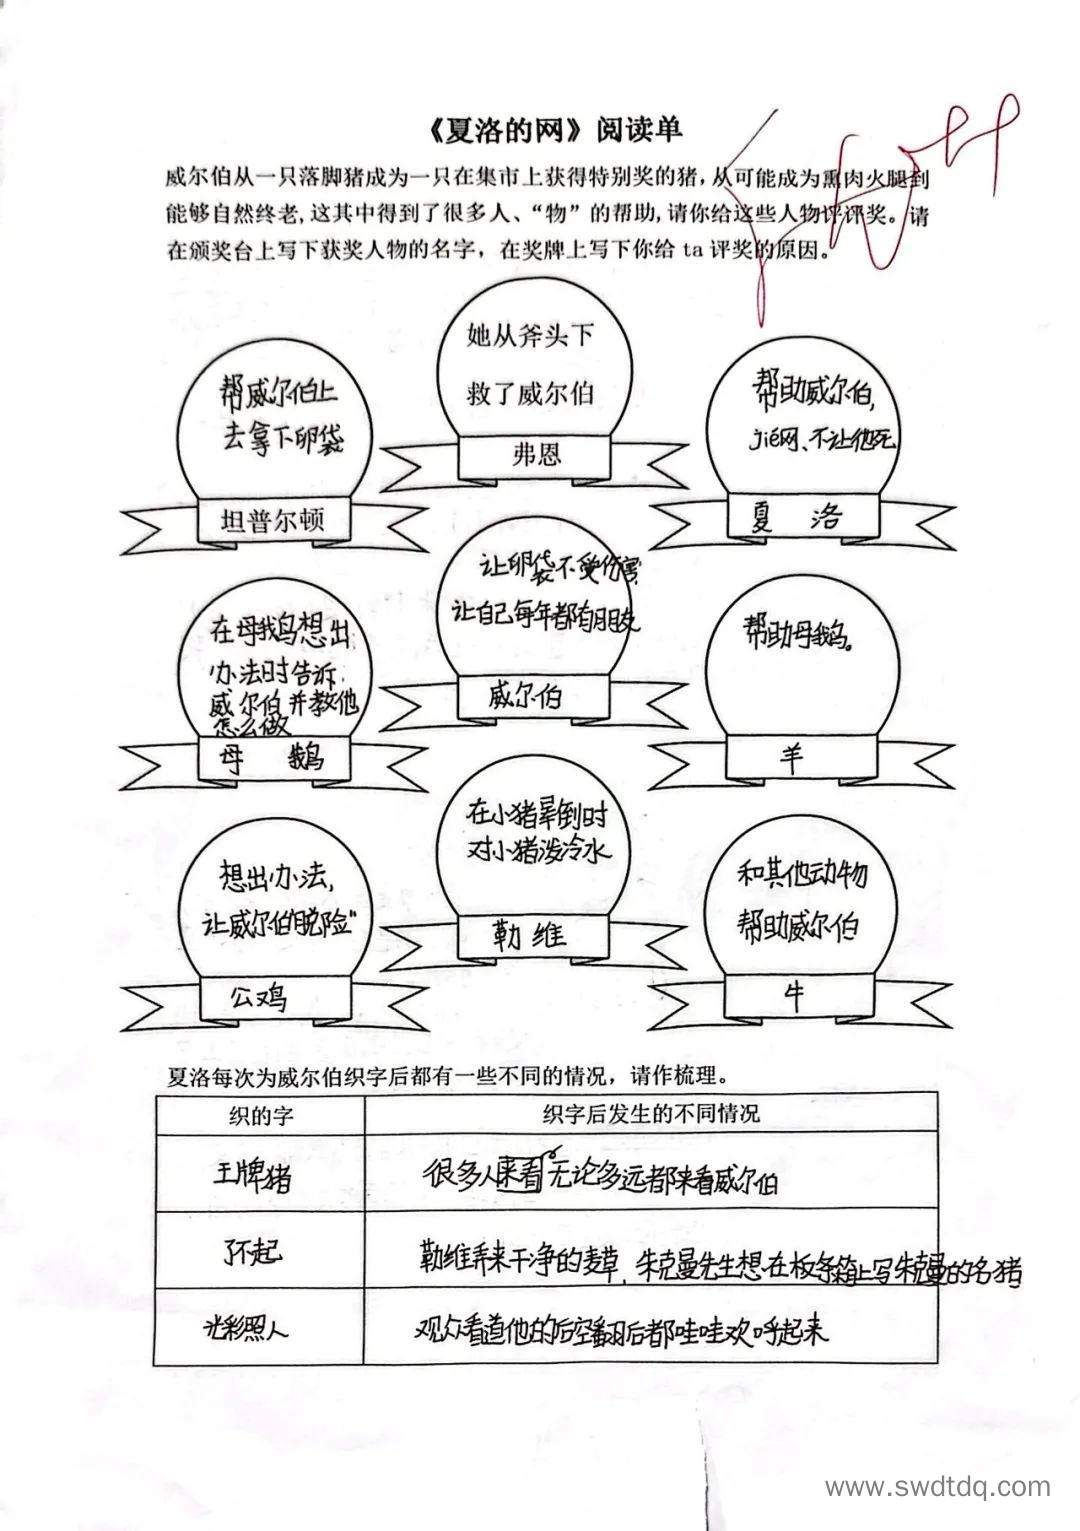 《夏洛的网》阅读单
威尔伯从一只落脚猪成为一只在集市上获得特别奖的猪，从可能成为熏肉火腿到
能够自然终老，这其中得到了很多人、“物”的帮助，请你给这些人物评评奖。请
在颁奖台上写下获奖人物的名字，在奖牌上写下你给 ta 评奖的原因。
她从斧头下
救了威尔伯
弗恩
帮威尔伯上
去拿下卵袋
坦普尔顿
帮助威尔伯，
jié网、不让他死
夏 洛
让卵袋不受伤害
让自己每年都有朋友
威尔伯
在母鹅想出
办法时告诉
威尔伯并教他
怎么做
母 鹅
帮助母鹅。
羊
在小猪晕倒时
对小猪泼冷水
勒维
想出办法，
让威尔伯“脱险”
公鸡
和其他动物
帮助威尔伯
牛
夏洛每次为威尔伯织字后都有一些不同的情况，请作梳理。
织的字 织字后发生的不同情况
王牌猪 很多人来看无论多远都来看威尔伯
了不起 勒维弄来干净的麦草，朱克曼先生想在板条箱上写朱克曼的名猪
光彩照人 观众看道他的后空翻后都哇哇欢呼起来
www.swdtdq.com